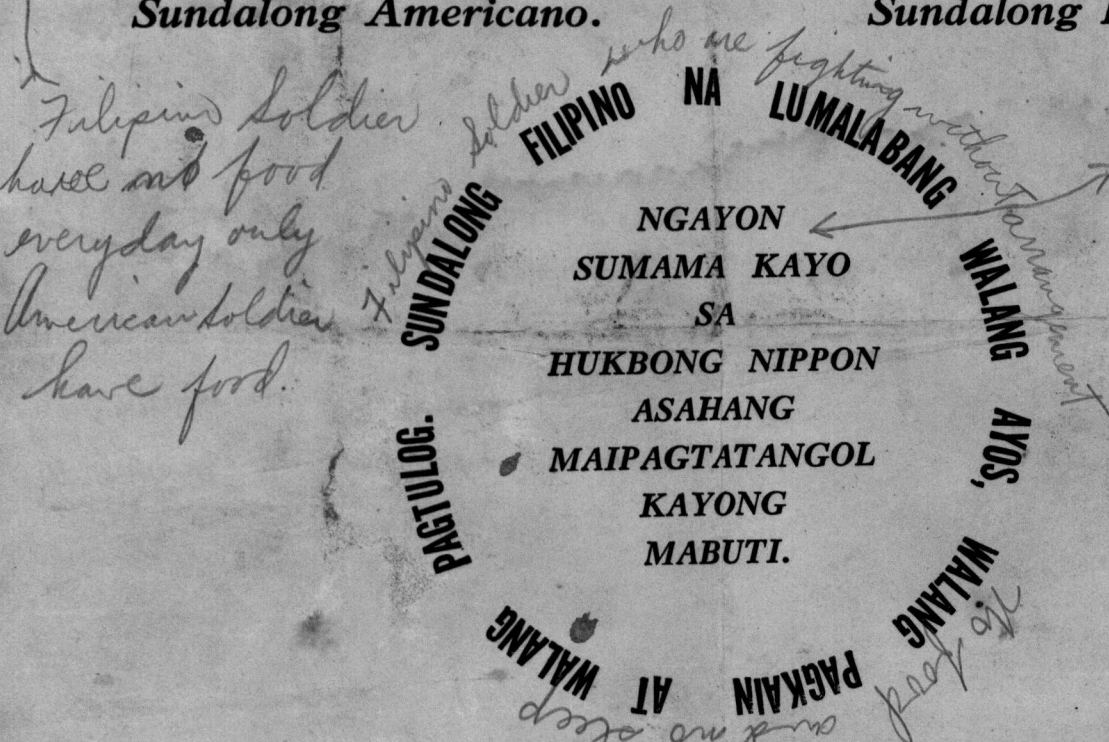 Sundalong Americano.
Sundalong
Filipino Soldier
have no food
everyday only
American Soldier
have food.
Filipino Soldier who are fighting without arrangement
No food
and no sleep
SUNDALONG FILIPINO NA LUMALABANG WALANG AYOS, WALANG PAGKAIN AT WALANG PAGTULOG.
NGAYON
SUMAMA KAYO
SA
HUKBONG NIPPON
ASAHANG
MAIPAGTATANGOL
KAYONG
MABUTI.